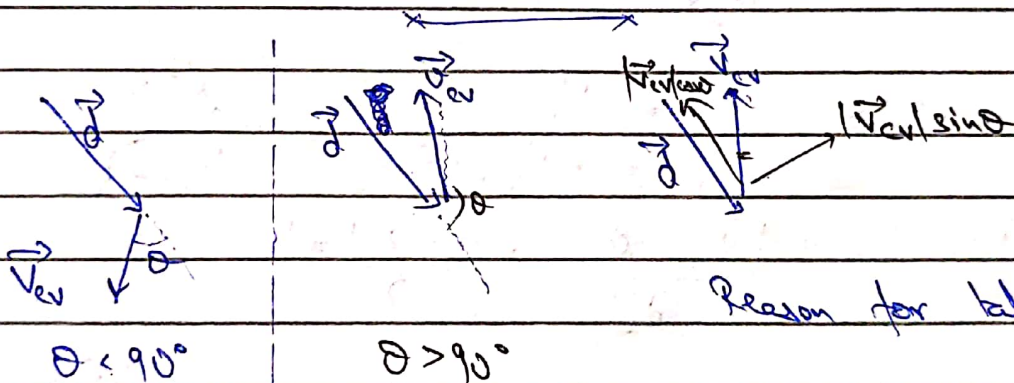 d⃗
V⃗ev
θ
θ < 90°
d⃗
V⃗ev
θ
θ > 90°
|V⃗ev| cosθ
V⃗ev
d⃗
|V⃗ev| sinθ
Reason for